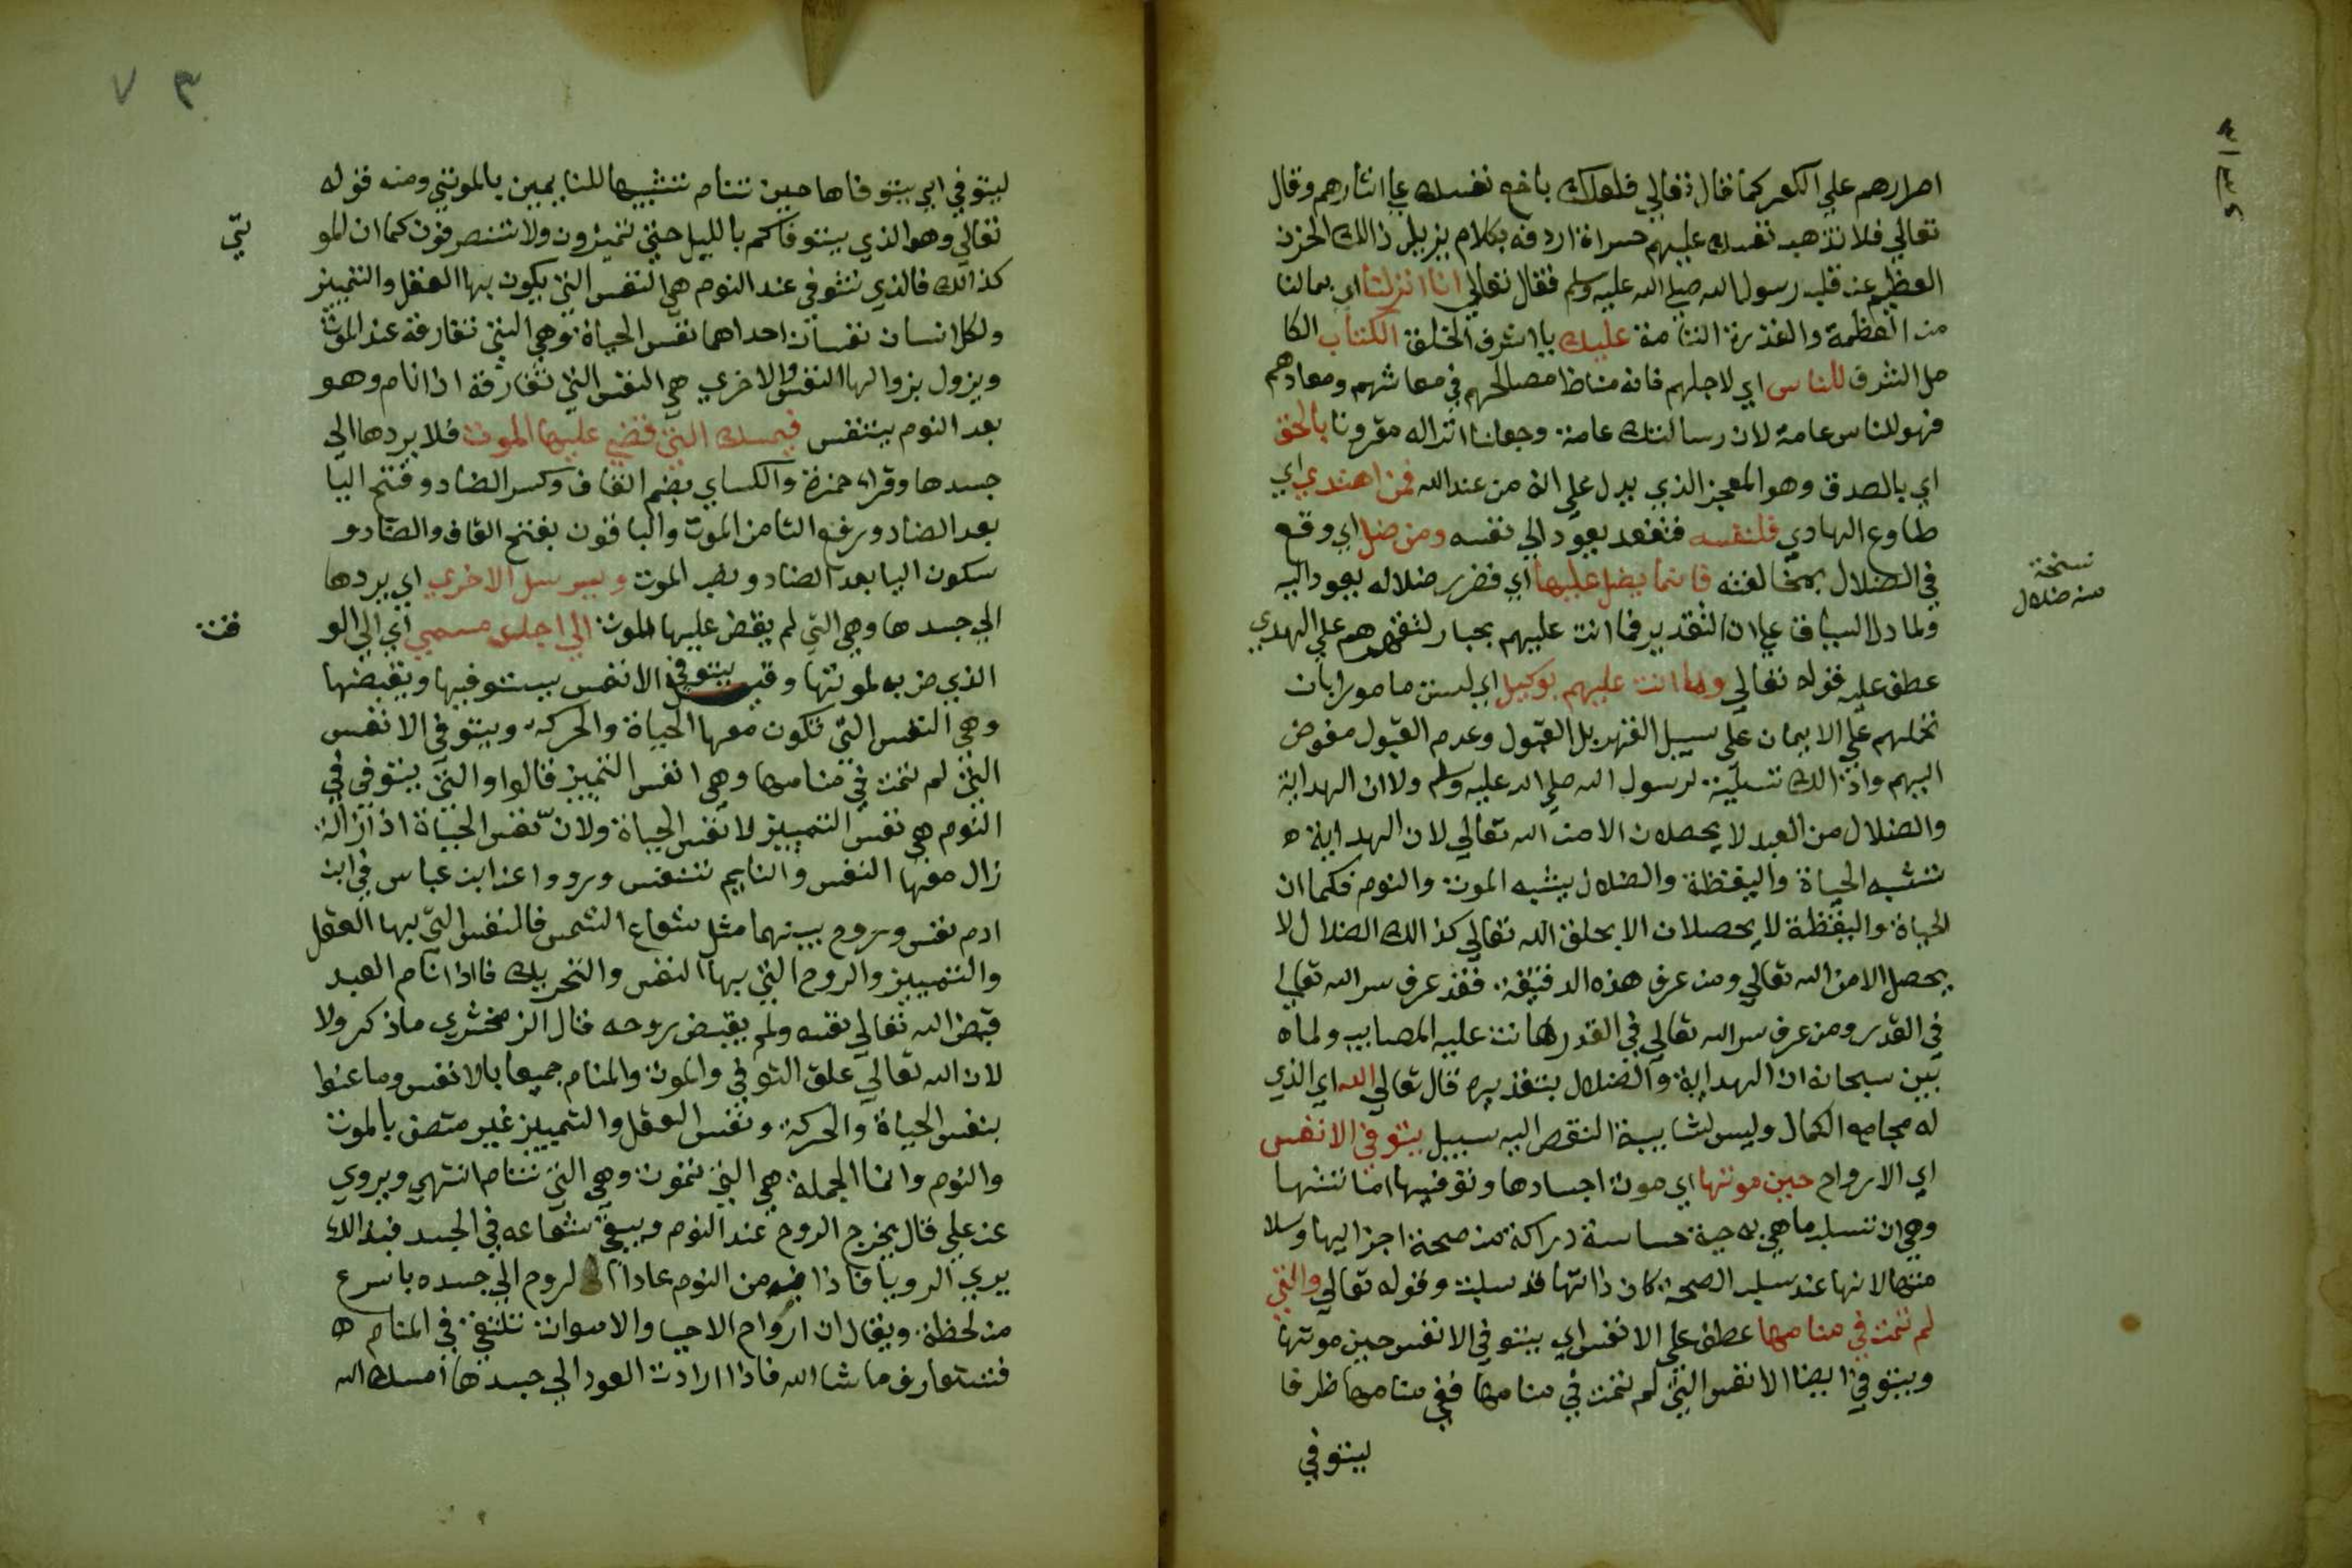 اصرارهم علي الكفر كما قال تعالي فلعلك باخع نفسك علي اثارهم وقال
تعالي فلا تذهب نفسك عليهم حسراة اردفه بكلام يزيل ذالك الحزن
العظيم عن قلب رسول الله صلي الله عليه وسلم فقال تعالي انا انزلنا اي بمالنا
من العظمة والقدرة التامة عليك يا اشرف الخلق الكتاب الكا
مل الشرف للناس اي لاجلهم فانه مناط مصالحهم في معاشهم ومعادهم
فهو للناس عامة لان رسالتك عامة وجعلنا انزاله مقرونا بالحق
اي بالصدق وهو المعجز الذي يدل علي انه من عند الله فمن اهتدي اي
طاوع الهادي فلنفسه فنفعه يعود الي نفسه ومن ضل اي وقع
في الضلال بمخالفته فانما يضل عليها اي فضرر ضلاله يعود اليه
نسخة
من ضلال
ولما دل السياق علي ان التقدير فما انت عليهم بجبار لتقهرهم علي الهدي
عطف عليه قوله تعالي وما انت عليهم بوكيل اي لست مامورا بان
تحملهم علي الايمان علي سبيل القهر بل القبول وعدم القبول مفوض
اليهم وذالك تسلية لرسول الله صلي الله عليه وسلم ولان الهداية
والضلال من العبد لا يحصلان الا من الله تعالي لان الهداية ه
تشبه الحياة واليقظة والضلال يشبه الموت والنوم فكما ان
الحياة واليقظة لا يحصلان الا بخلق الله تعالي كذالك الضلال لا
يحصل الا من الله تعالي ومن عرف هذه الدقيقة فقد عرف سر الله تعالي
في القدر ومن عرف سر الله تعالي في القدر هانت عليه المصايب ولما ه
بين سبحانه ان الهداية والضلال بتقديره قال تعالي الله اي الذي
له مجامع الكمال وليس لشايبة النقص اليه سبيل يتوفي الانفس
اي الارواح حين موتها اي موت اجسادها وتوفيها اماتتها
وهي ان تسلب ما هي به حية حساسة دراكة من صحة اجزايها وسلا
متها لانها عند سلب الصحة كان ذاتها قد سلبت وقوله تعالي والتي
لم تمت في منامها عطف علي الانفس اي يتوفي الانفس حين موتها
ويتوفي ايضا الانفس التي لم تمت في منامها ففي منامها ظرفا
ليتوفي
٧٣
ليتوفي اي يتوفاها حين تنام تشبيها للنايمين بالموتي ومنه قوله
تعالي وهو الذي يتوفاكم بالليل حتي تميزون ولا تتصرفون كما ان المو
تي
كذالك فالذي تتوفي عند النوم هي النفس التي يكون بها العقل والتمييز
ولكل انسان نفسان احداهما نفس الحياة وهي التي تفارقه عند الموت
ويزول بزوالها النفس والاخري هي النفس التي تفارقه اذا نام وهو
بعد النوم يتنفس فيمسك التي قضي عليها الموت فلا يردها الي
جسدها وقراء حمزة والكساي بضم القاف وكسر الضاد وفتح اليا
بعد الضاد ورفع التا من الموت والباقون بفتح القاف والضاد و
سكون اليا بعد الضاد ونصب الموت ويرسل الاخري اي يردها
الي جسدها وهي التي لم يقض عليها الموت الي اجل مسمي اي الي الو
قت
الذي ضربه لموتها وقيل يتوفي الانفس يستوفيها ويقبضها
وهي النفس التي تكون معها الحياة والحركة ويتوفي الانفس
التي لم تمت في منامها وهي انفس التمييز قالوا والتي يتوفي في
النوم هي نفس التمييز لا نفس الحياة ولان نفس الحياة اذا زالة
زال معها النفس والنايم تتنفس ورووا عن ابن عباس في ابن
ادم نفس وروح بينهما مثل شعاع الشمس فالنفس التي بها العقل
والتمييز والروح التي بها النفس والتحريك فااذا نام العبد
قبض الله تعالي نفسه ولم يقبض روحه قال الزمخشري ماذكر ولا
لان الله تعالي علق التوفي والموت والمنام جميعا بالانفس وما عنوا
بنفس الحياة والحركة ونفس العقل والتمييز غير متصف بالموت
والنوم وانما الجملة هي التي تموت وهي التي تنام انتهي ويروي
عن علي قال يخرج الروح عند النوم ويبقي شعاعه في الجسد فبذالك
يري الرويا فاذا من النوم عاد الروح الي جسده باسرع
من لحظة ويقال ان ارواح الاحيا والاموات تلتقي في المنام ه
فتتعارف ما شا الله فاذا ارادت العود الي جسدها امسك الله